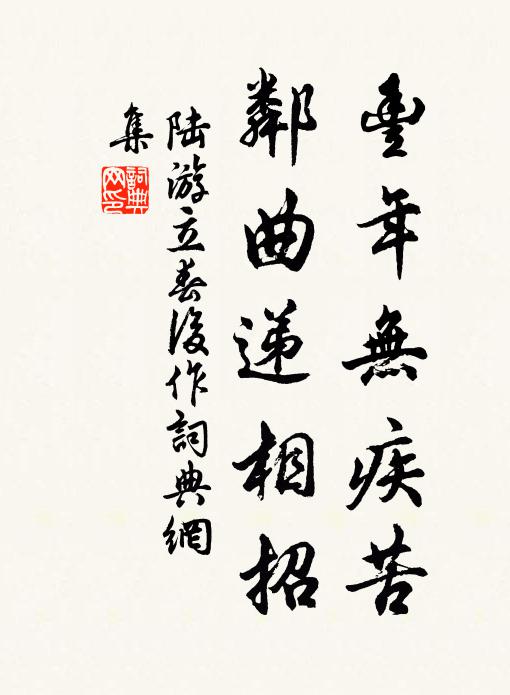 豊年無疾苦
鄰曲递相招
陆游立春後作詞典網
集
詞典
网印